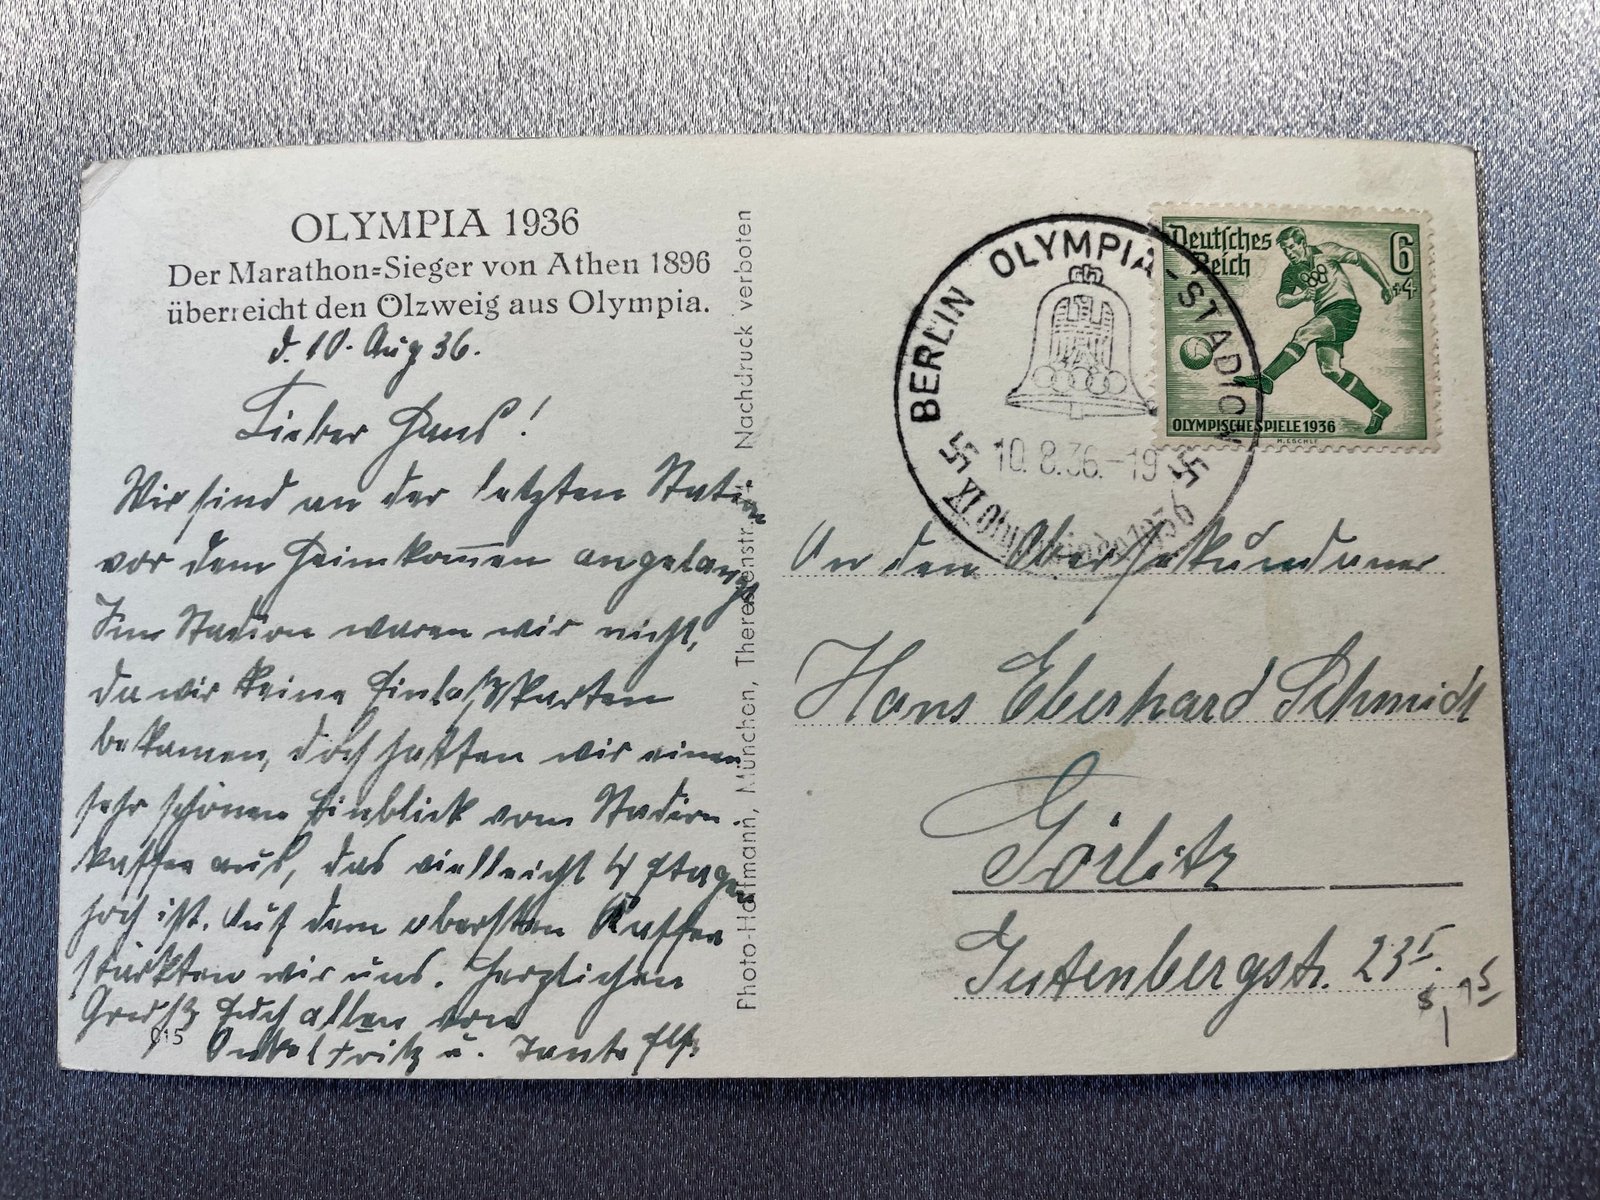 OLYMPIA 1936
Der Marathon=Sieger von Athen 1896
überreicht den Ölzweig aus Olympia.
d. 10. Aug 36.
Lieber Hans!
Wir sind an der letzten Station
vor dem Heimkom̅en angelangt
Im Stadion waren wir nicht,
da wir keine Einlaßkarten
bekamen, doch hatten wir einen
sehr schönen Einblick vom Stadion-
kaffee aus, das vielleicht 4 Etagen
hoch ist. Auf dem obersten Kaffee
stärkten wir uns. Herzlichen
Gruß Euch allen von
Onkel Fritz u. Tante Else
015
Photo-Hoffmann, München, Theresienstr. Nachdruck verboten
BERLIN OLYMPIA-STADION
10.8.36.-19
XI Olympiade 1936
Deutsches
Reich
6
+4
OLYMPISCHE SPIELE 1936
M. ESCHLE
An den Obersekundaner
Hans Eberhard Schmidt
Görlitz
Gutenbergstr. 23 I.